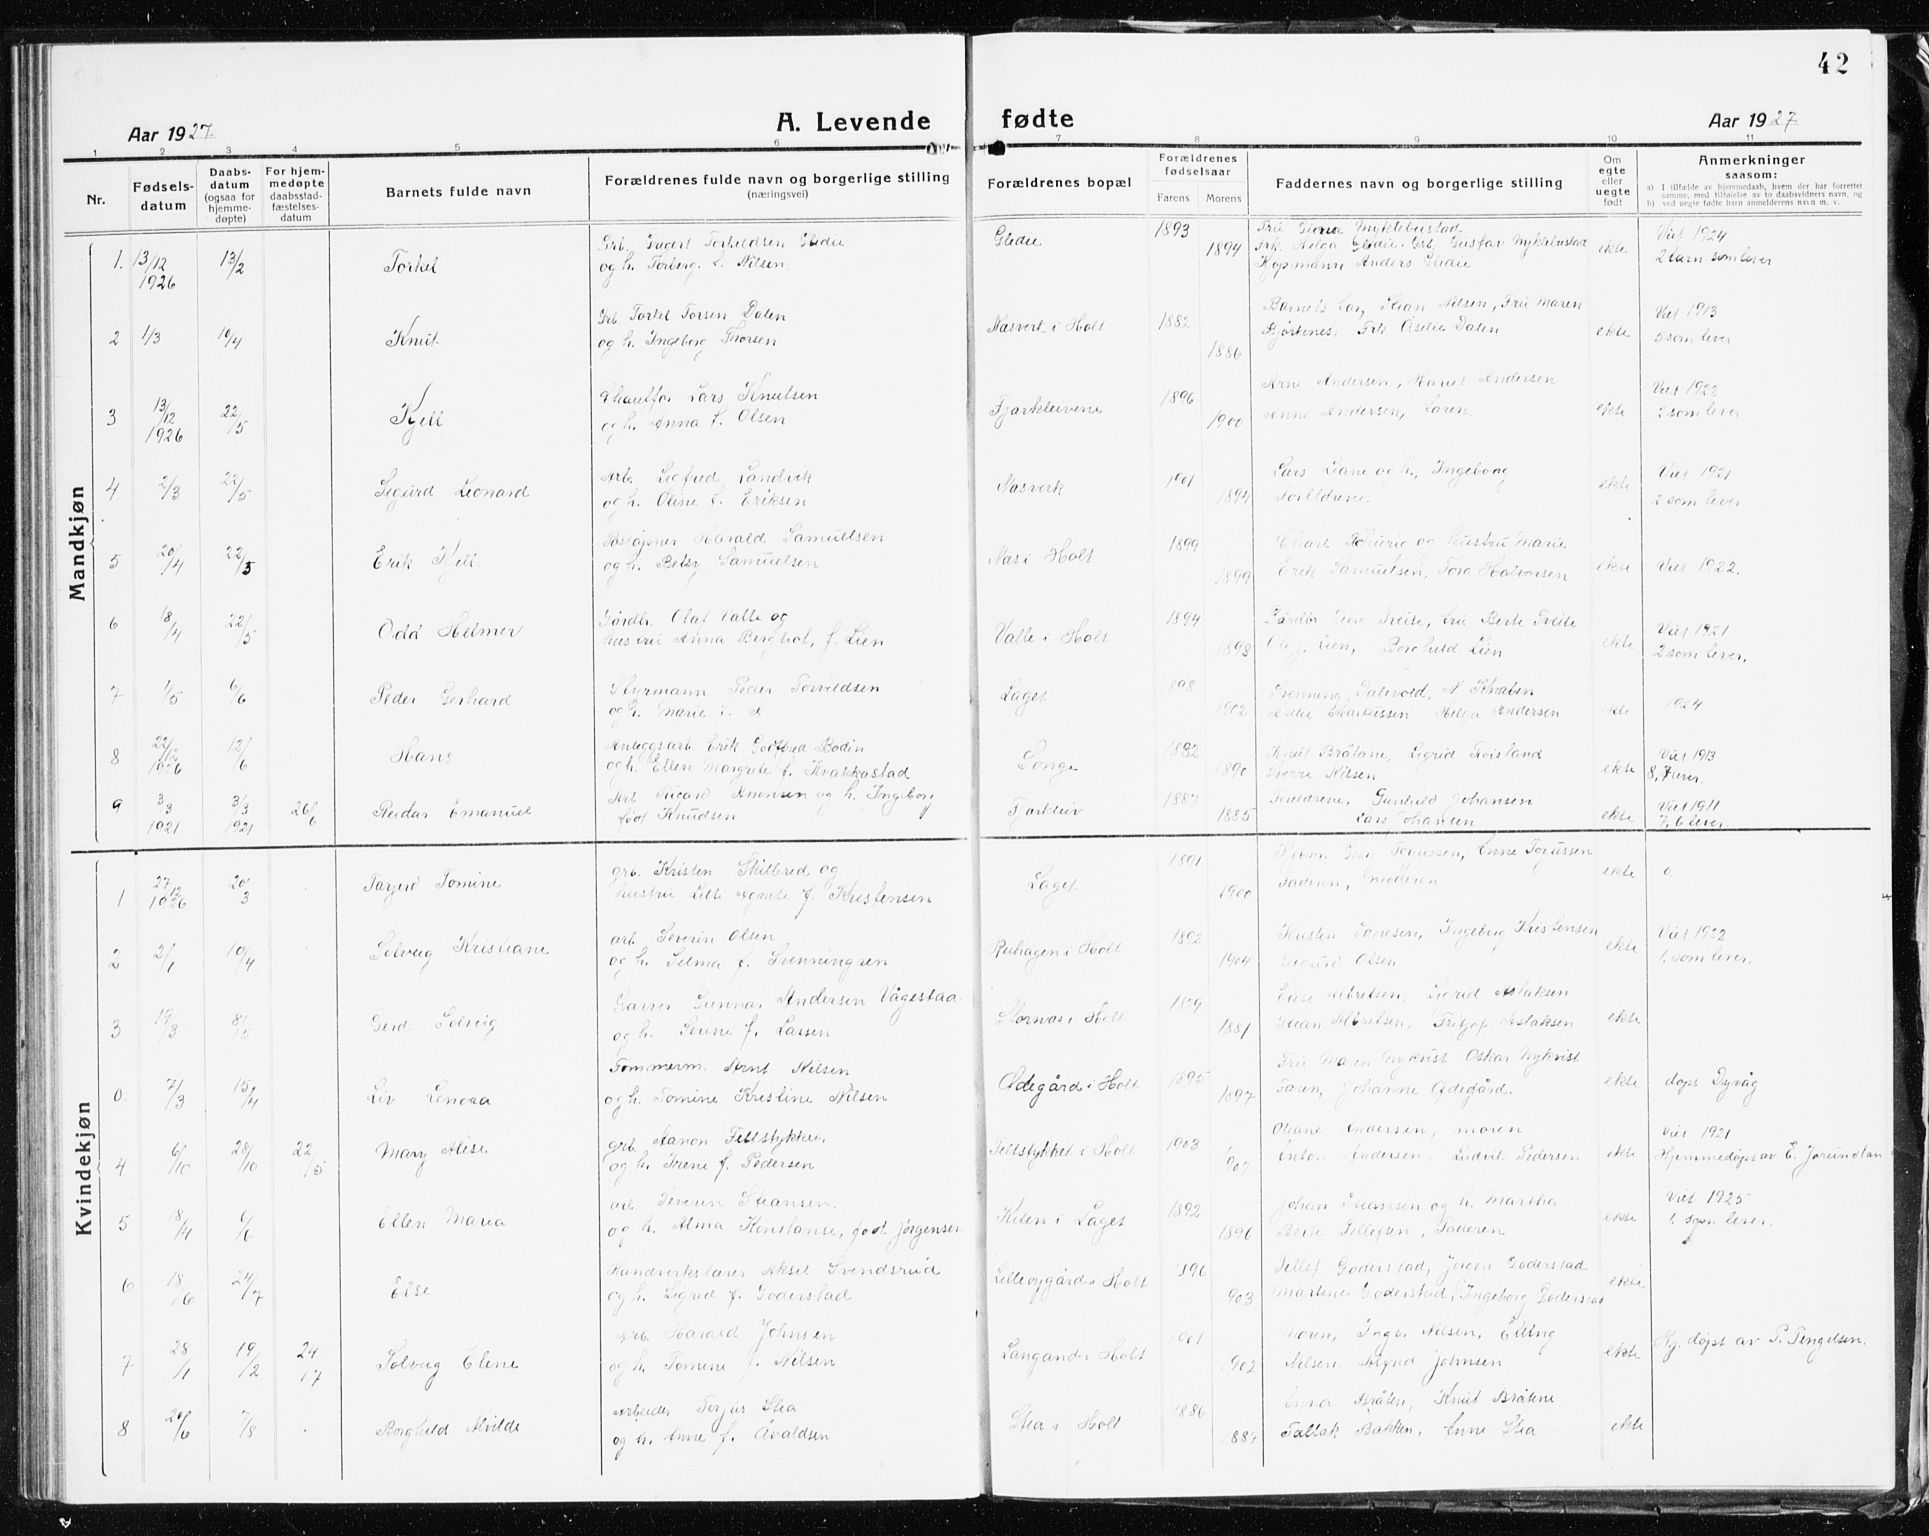 42
Aar 1927
A. Levende fødte
Aar 1927
1 2 3 4 5 6 7 8 9 10 11
Nr.
Fødsels-
datum
Daabs-
datum
(ogsaa for
hjemme-
døpte)
For hjem-
medøpte
daabsstad-
fæstelses-
datum
Barnets fulde navn
Forældrenes fulde navn og borgerlige stilling
(næringsvei)
Forældrenes bopæl
Forældrenes
fødselsaar
Farens Morens
Faddernes navn og borgerlige stilling
Om
egte
eller
uegte
født
Anmerkninger
saasom:
a) I tilfælde av hjemmedaab, hvem der har forrettet
samme, med tilføielse av to daabsvidners navn, og
b) ved uegte fødte barn anmelderens navn m. v.
Mandkjøn
1. 13/12 1926 13/2 Torkel
og h. Torborg f. Nilsen
Gliddie 1893 1894
ekte Viet 1924
2 barn som lever
2 1/3 10/4 Knut
Grb. Torkel Torsen Dalen
og h. Ingeborg Thorsen
Nasverk i Holt 1882 1886
Bjørkenes, Frk Aslie Dalen
ekte Viet 1913
5 som lever
3 13/12 1926 22/5 Kjell
Chauffør Lars Knutsen
og h. Anna f. Olsen
Fjærkleivene 1896 1900
Arne Andersen, Andersen
Anne Andersen, faren
ekte Viet 1922
2 som lever
4 2/3 22/5 Sigurd Leonard
Arb. Sigfred Landvik
og h. Oline f. Eriksen
Nasverk 1901 1894
Lars Liane og h. Ingeborg
Foreldrene
ekte Viet 1921
2 som lever
5 20/4 22/5 Erik Kjell
Harald Samuelsen
og h. Betsy Samuelsen
Nas i Holt 1899 1899
og hustru Marie
Erik Samuelsen, Tora Halvorsen
ekte Viet 1922.
6 18/4 22/5 Odd Helmer
Gårdbr. Olaf Valle og
hustru Anna Berghot, f. Lien
Valle i Holt 1894 1898
Gårdbr Treite, fru Berte Treite
Olaf Lien, Borghild Lien
ekte Viet 1921
2 som lever.
7 1/5 6/6 Peder Gerhard
Styrmann Peder Torvildsen
og h. Marie f. A
Laget 1898 1902
Svenning Dalevold, N. Knaben
Aslie Markussen Helga Andersen
ekte 1924
8 22/12 1926 12/6 Hans
Anleggsarb Erik Gotfred Bodin
og h. Ellen Margrete f. Knakkastad
Songe 1882 1890
Knut Bråtane, Sigrid Froisland
Sverre Nilsen
ekte Viet 1913
8, 7 lever.
9 3/3 1921 3/3 1921 26/6 Reidar Emanuel
Arb Ricard Anensen og h. Ingeborg
født Knudsen
Fjærkleiv 1887 1885
Foreldrene, Gunhild Johansen
Lars Johansen
ekte Viet 1911
7, 6 lever.
Kvindekjøn
1 27/12 1926 20/3 Targerd Tomine
grb. Kristen Skilbred og
hustru Lilli Agnete f. Kristensen
Laget 1891 1900
Torjussen, Anne Torjussen
Faderen, moderen
ekte 0
2 2/1 10/4 Solveig Kristiane
arb. Severin Olsen
og h. Selma f. Svenningsen
Ruhagen i Holt 1892 1904
Kristen Tønnesen, Ingeborg Kristensen
Sigurd Olsen
ekte Viet 1922
1. som lever.
3 19/3 8/5 Gerd Solveig
Garver Gunnar Andersen Vågestaa
og h. Serine f. Larsen
Stornas i Holt 1879 1881
Else Albretsen, Sigrid Aslaksen
Stian Albretsen, Fritjof Aslaksen
ekte
0. 7/3 15/4 Liv Lenora
Tømmerm. Arnt Nilsen
og h. Tomine Kristine Nilsen
Ødegård i Holt 1895 1897
Fru Maren Nykvist Oskar Nykvist
Faren, Johanne Ødegård.
ekte døpt Dypvåg
4 6/10 28/10 22/5 Mary Alise
grb. Aanon Fellstykket
og h. Irene f. Pedersen
Fellstykket i Holt 1903 1907
Oliane Andersen, moren
Anton Andersen, Ludvik Pedersen
ekte Viet 1921
Hjemmedøpt av E. Jørundlan
5 18/4 6/6 Ellen Maria
arb. Severin Stiansen
og h. Alma Konstanse, født Jørgensen
Kilen i Laget 1892 1896
Johan Stiansen og h. Martha
Berte Tellefsen, Faderen
ekte Viet 1925
1. som lever.
6 18/6 24/7 Else
Handverkslærer Aksel Svendsrud
og h. Sigrid f. Goderstad
Lilleøygård i Holt 1896 1903
Tellef Goderstad, Jørgen Goderstad
Martine Goderstad, Ingeborg Goderstad
ekte
7 28/1 19/2 24/7 Solveig Elene
Arb. Harald Johnsen
og h. Tomine f. Nilsen
Langand i Holt 1901 1902
Moren, Inga Nilsen, Elling
Nilsen Alfred Johnsen
ekte Hj. døpt av P. Tengelsen.
8 20/6 7/8 Borghild Alvilde
Arbeider Torjus Stea
og h. Anne f. Avaldsen
Stea i Holt 1886 1884
Anna Bråten, Knut Bråtene
Tallak Bakken, Anne Stea
ekte